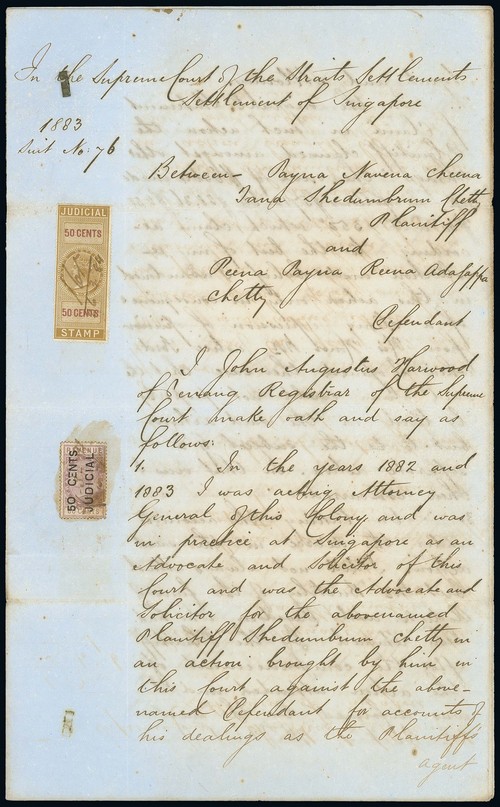 In the Supreme Court of the Straits Settlements
Settlement of Singapore
1883
Suit No: 76
Between Payna Navena Cheena
Tana Shedumbrum Chetty
Plaintiff
and
Peena Payna Reena Adajappa
Chetty
Defendant
JUDICIAL
50 CENTS
50 CENTS
STAMP
50 CENTS
JUDICIAL
I John Augustus Harwood
of Penang Registrar of the Supreme
Court make oath and say as
follows:
1. In the years 1882 and
1883 I was acting Attorney
General of this Colony and was
in practice at Singapore as an
Advocate and Solicitor of this
Court and was the Advocate and
Solicitor for the abovenamed
Plaintiff Shedumbrum Chetty in
an action brought by him in
this Court against the above-
named Defendant for accounts of
his dealings as the Plaintiff's
agent